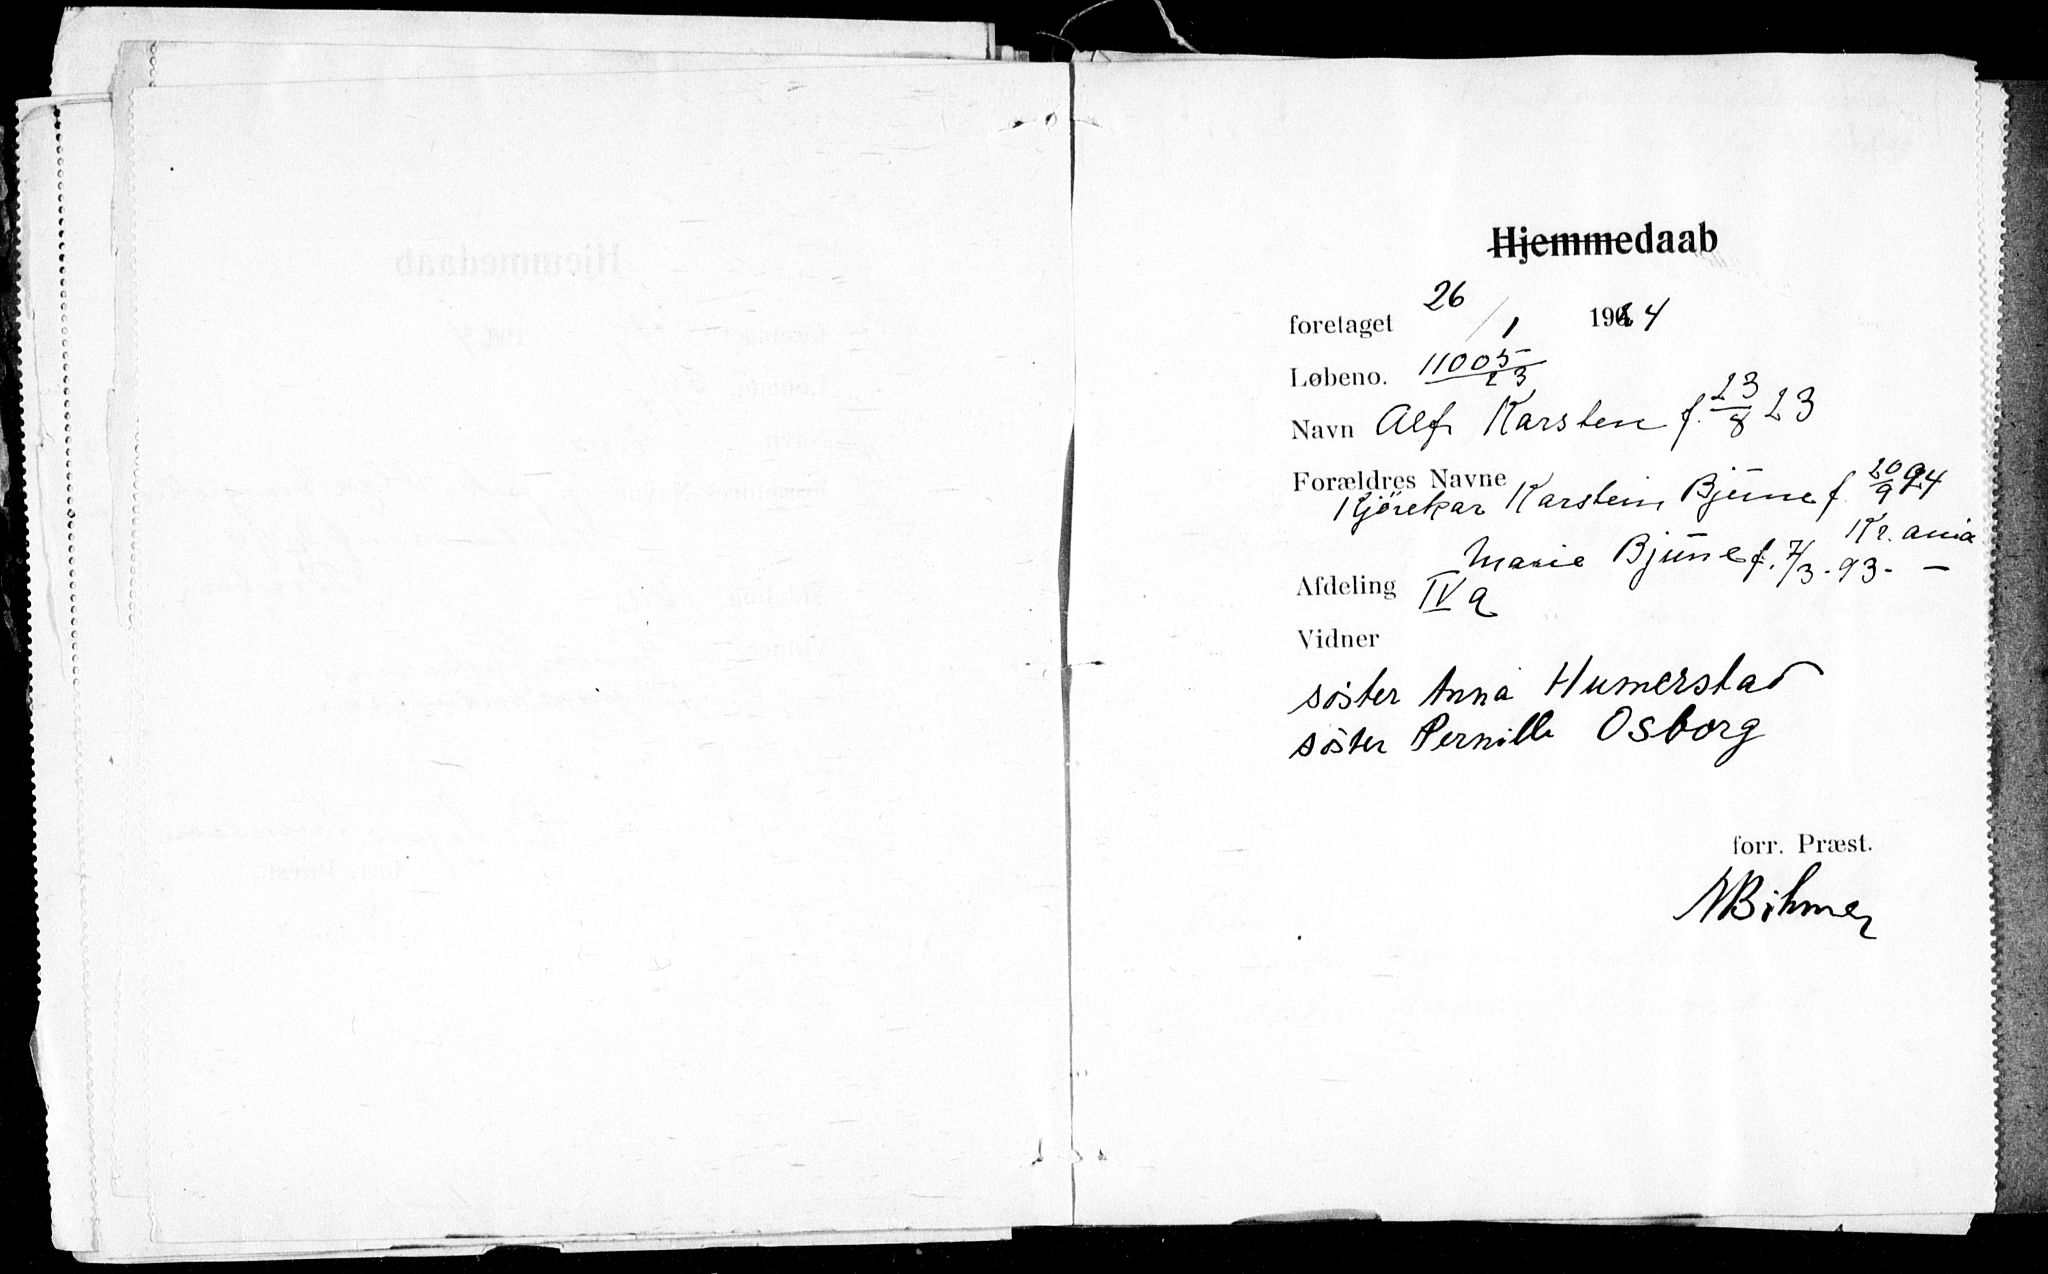 Hjemmedaab
foretaget 26/1 1924
Løbeno. 11005/23
Navn Alf Karsten f. 23/8 23
Forældres Navne
Kjörekar Karstein Bjune f. 20/9 94
Kr.ania
Marie Bjune f. 7/3 - 93 - —
Afdeling IV a
Vidner
søster Anna Humerstad
søster Pernille Osborg
forr. Præst.